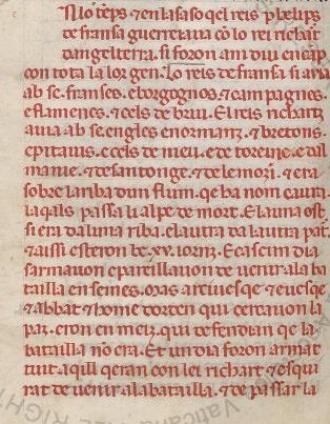 Al lo tẽps ⁊ en la saso qel reis phelips
de fransa guerreiaua cõ lo rei richat
dangleterra. si foron am diu en cãp
con tota la lor gen. Lo reis de fransa si auia
ab se. franses. e borgognos. ⁊ campagnes.
e flamencs. ⁊ cels de briu. El reis richartz
auia ab se. engles e normantz. ⁊ bretons.
e pitauis. e cels de . e de toreine. e dal
manie. ⁊ de santonge. ⁊ de lemozi. ⁊ era
sobre la riba dun flum. qe ha nom
la qals passa li al pe de mort. E launa ost
si era daluna riba. e lautra da lautra pat.
⁊ aissi esteron be .xv. iornz. E cascun dia
sarmauon e pareillauon de uenir ala ba
tailla ensems. Mas arciuesqe ⁊ euesqe
⁊ abbat ⁊ home dorden qui cercauon la
paz. eron en metz. qui defendian qe la
batailla nõ era. Et un dia foron armat
tuit aqill qeran con lei richart ⁊ esqui
rat de uenir a la batailla. ⁊ de passar la